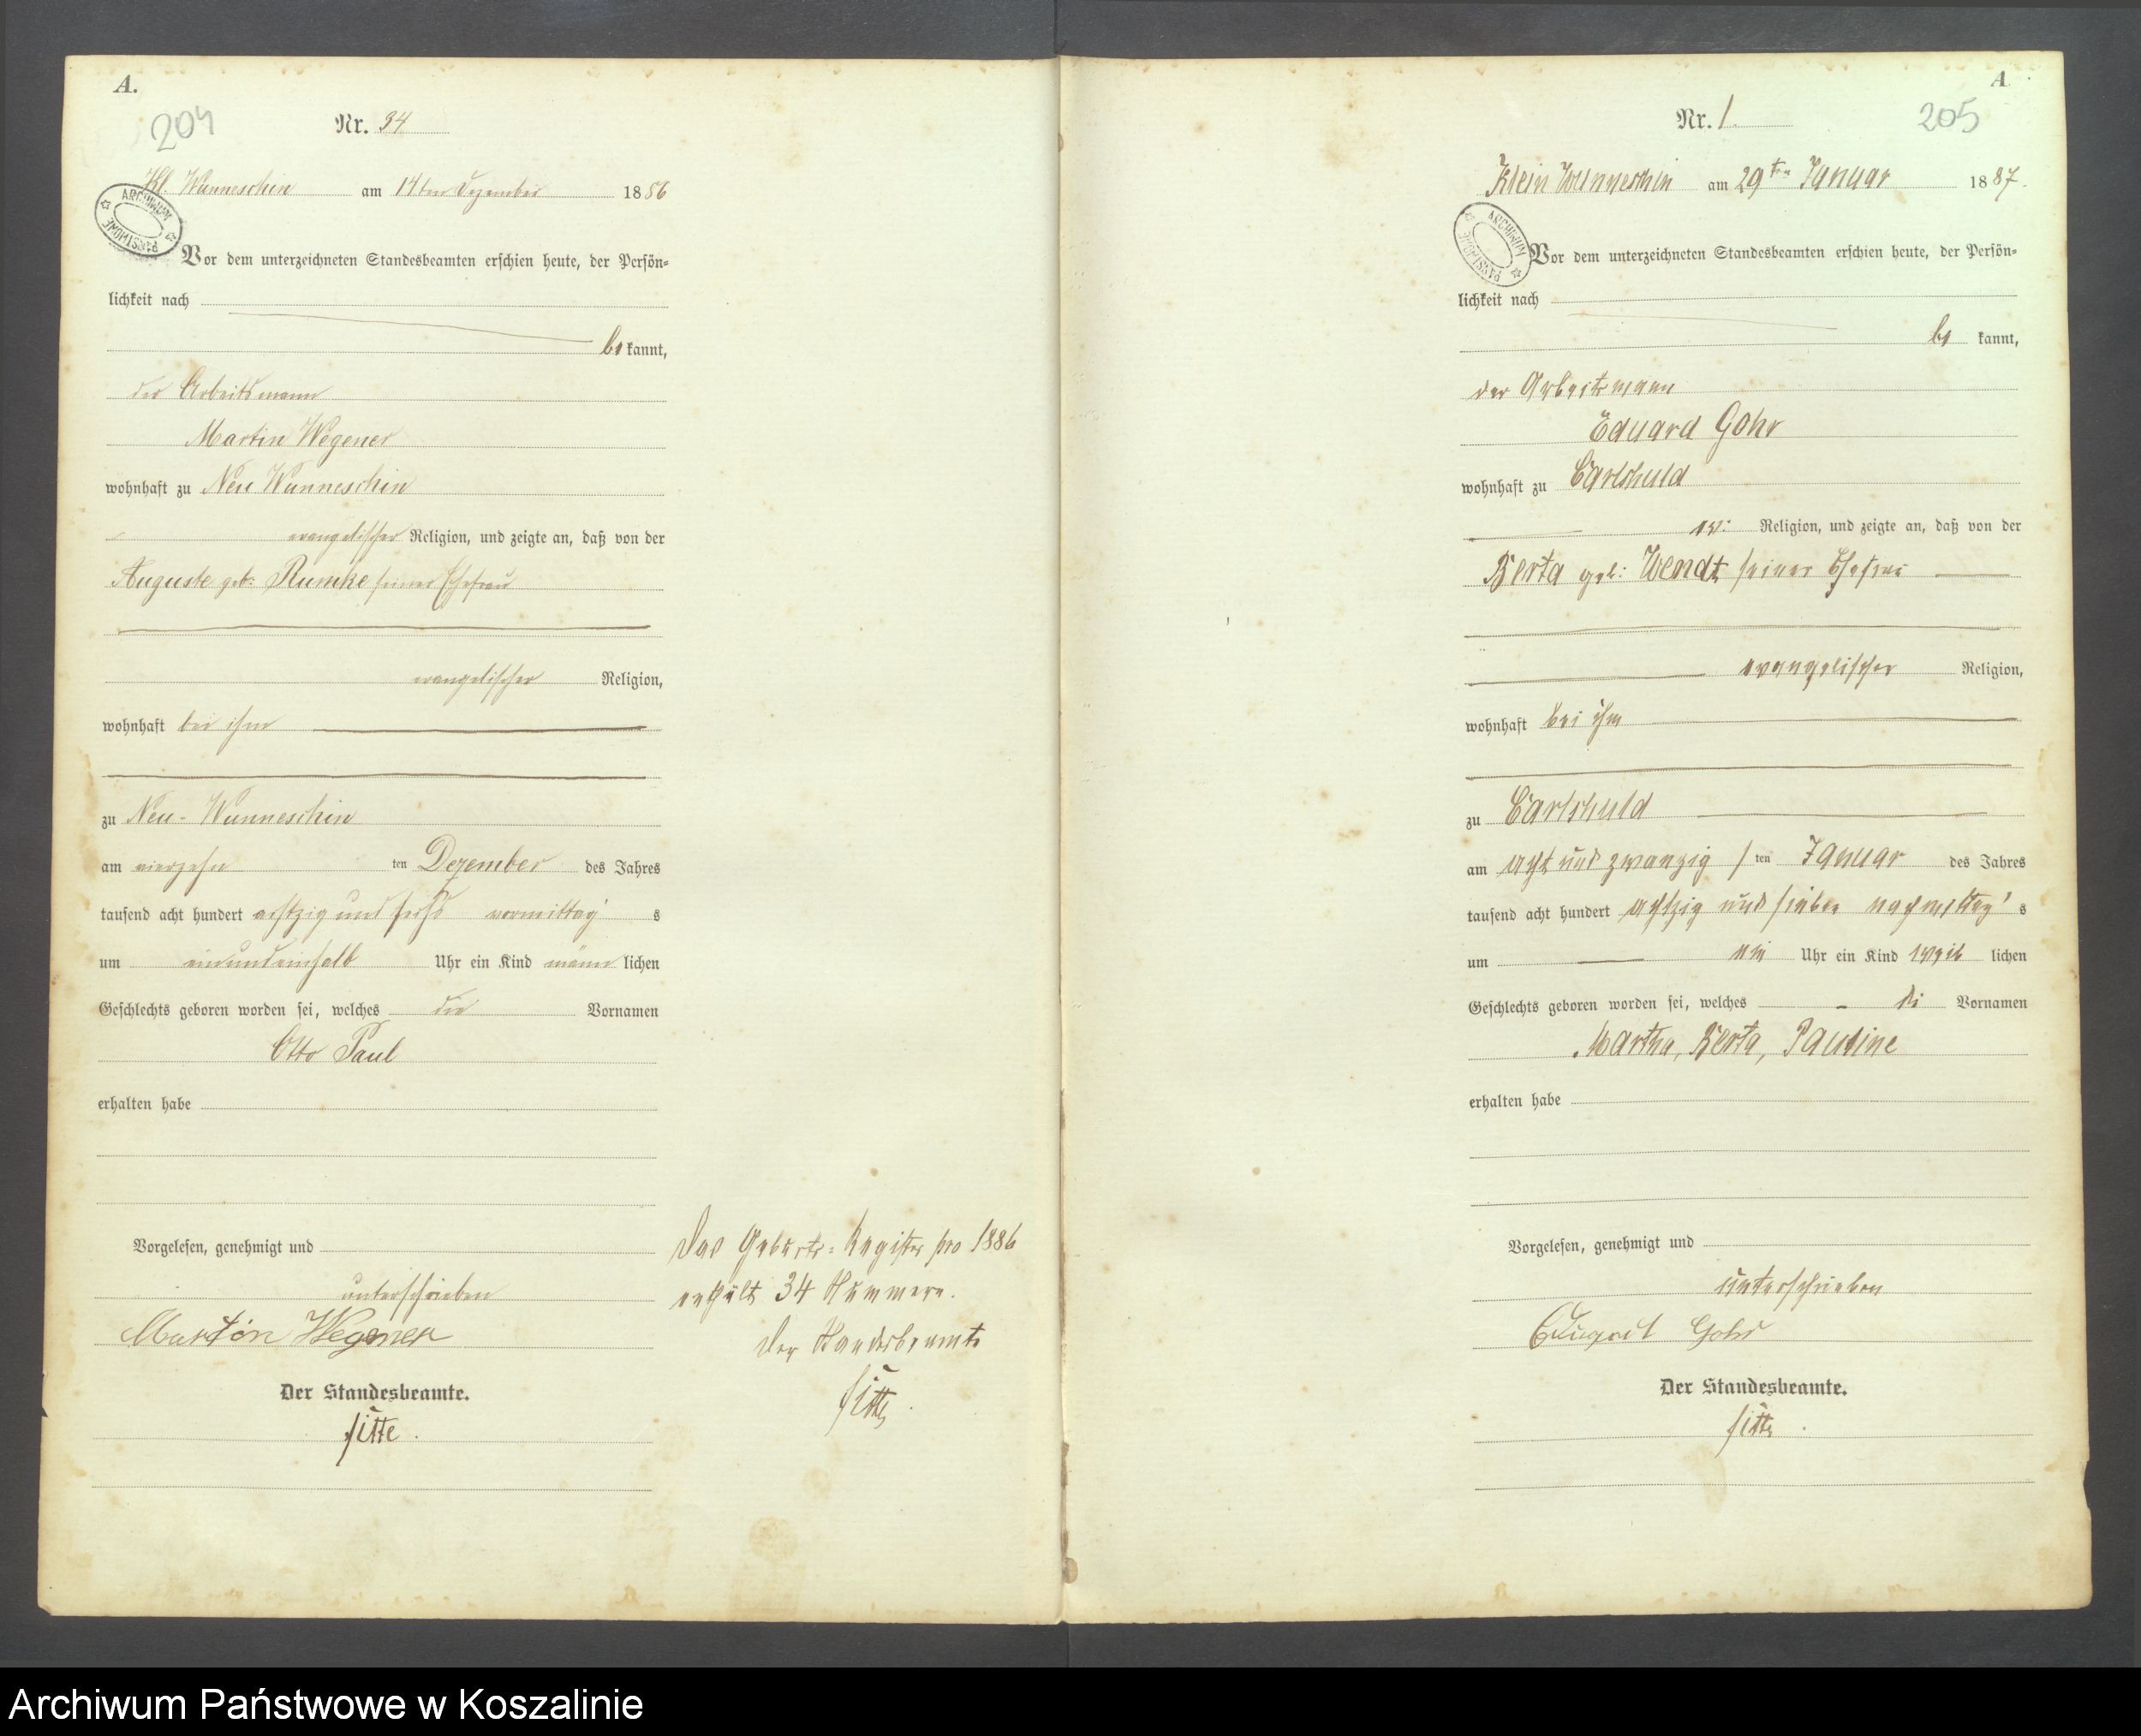 A.
204
Nr. 34
Kl. Wunneschin am 14ten Dezember 1886
ARCHIWUM PAŃSTWOWE
Vor dem unterzeichneten Standesbeamten erschien heute, der Persön-
lichkeit nach
be kannt,
der Arbeitsmann
Martin Wegener
wohnhaft zu Neu Wunneschin
evangelischer Religion, und zeigte an, daß von der
Auguste geb: Rumke seiner Ehefrau
evangelischer Religion,
wohnhaft bei ihm
zu Neu-Wunneschin
am vierzehn ten Dezember des Jahres
tausend acht hundert achtzig und sechs vormittag's
um ein und einhalb Uhr ein Kind männ lichen
Geschlechts geboren worden sei, welches die Vornamen
Otto Paul
erhalten habe
Vorgelesen, genehmigt und
unterschrieben
Martin Wegener
Der Standesbeamte.
Sitte.
Das Geburts-Register pro 1886
enthält 34 Nummern.
Der Standesbeamte
Sitte.
A
Nr. 1.
205
Klein Wunneschin am 29ten Januar 1887.
ARCHIWUM PAŃSTWOWE
Vor dem unterzeichneten Standesbeamten erschien heute, der Persön-
lichkeit nach
be kannt,
der Arbeitsmann
Eduard Gohr
wohnhaft zu Carlshuld
ev: Religion, und zeigte an, daß von der
Berta geb: Wendt seiner Ehefrau
evangelischer Religion,
wohnhaft bei ihm
zu Carlshuld
am acht und zwanzig / ten Januar des Jahres
tausend acht hundert achtzig und sieben nachmittag's
um ein Uhr ein Kind weib lichen
Geschlechts geboren worden sei, welches die Vornamen
Martha, Berta, Pauline
erhalten habe
Vorgelesen, genehmigt und
unterschrieben
Gohr
Der Standesbeamte.
Sitte.
Archiwum Państwowe w Koszalinie